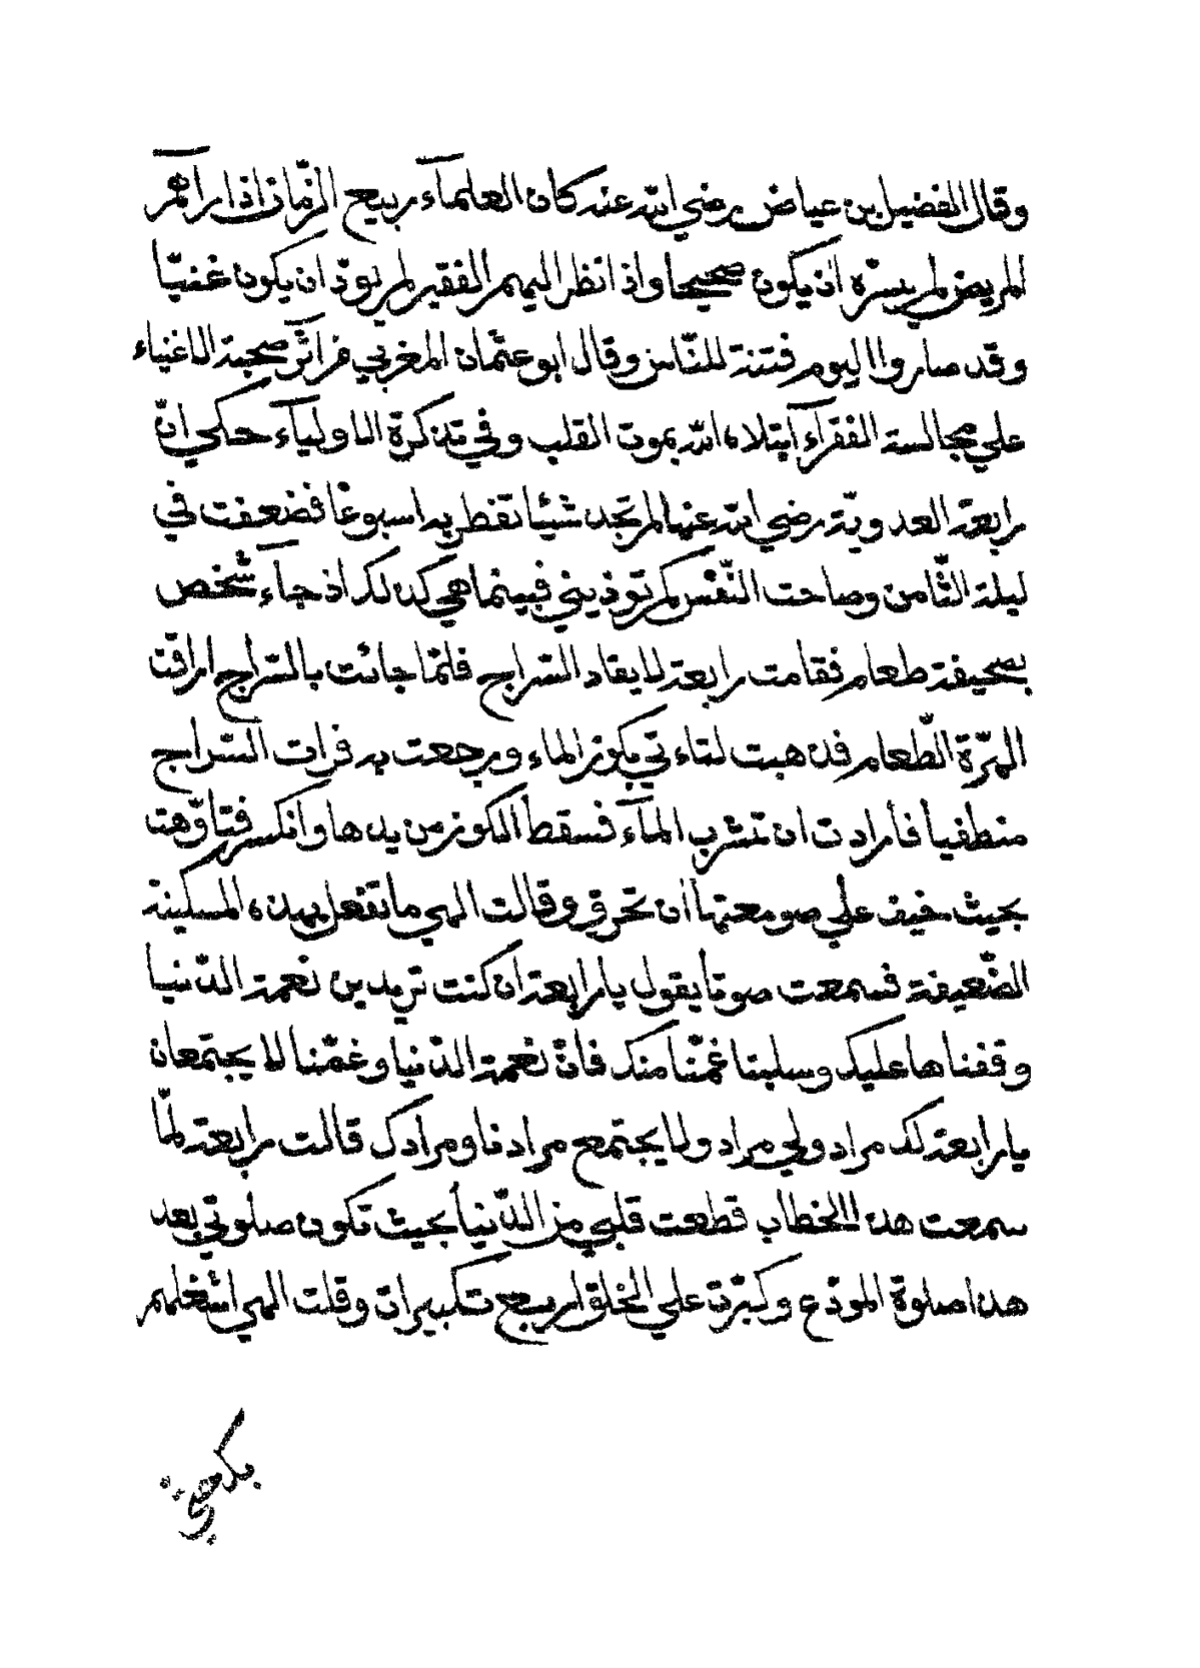 وقال الفضيل بن عياض رضي الله عنه كان العلمآء ربيع الزّمان اذا رآهم
المريض لم يسرّه ان يكون صحيحا واذا نظر اليهم الفقير لم يودّ ان يكون غنيّا
وقد صاروا اليوم فتنة للنّاس وقال ابو عثمان المغربي من آثر صحبة الاغنياء
علي مجالسة الفقرآء ابتلاه الله بموت القلب وفي تذكرة الاوليآء حكي انّ
رابعة العدويّة رضي الله عنها لم تجد شيئا تفطر به اسبوعا فضعفت في
ليلة الثّامن وصاحت النّفس كم توذيني فبينما هي كذلك اذ جآء شخص
بصحيفة طعام فقامت رابعة لايقاد السّراج فلمّا جائت بالسّراج اراقت
الهرّة الطّعام فذهبت لتاءتي بكوز الماء ورجعت به فرات السّراج
منطفيأ فأرادت ان تشرب المآء فسقط الكوز من يدها وانكسر فتاوّهت
بحيث خيف علي صومعتها ان تحرق وقالت الهي ما تفعل بهذه المسكينة
الضّعيفة فسمعت صوتا يقول يا رابعة ان كنت تريدين نعمة الدّنيا
وقفناها عليك وسلبنا غمّنا منك فانّ نعمة الدّنيا وغمّنا لا يجتمعان
يا رابعة لك مراد ولي مراد ولا يجتمع مرادنا ومرادك قالت رابعة لمّا
سمعت هذا الخطاب قطعت قلبي من الدّنيا بحيث تكون صلوتي بعد
هذا صلوة المودّع وكبّرت علي الخلق اربع تكبيرات وقلت الهي اشغلهم